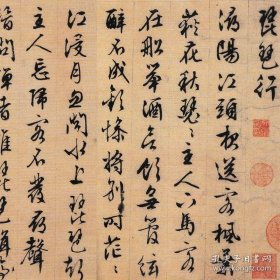 琵琶行
潯陽江頭夜送客楓葉
荻花秋瑟瑟主人下馬客
在船舉酒欲飲無管弦
醉不成歡慘將別別時茫茫
江浸月忽聞水上琵琶聲
主人忘歸客不發尋聲
暗問彈者誰琵琶聲